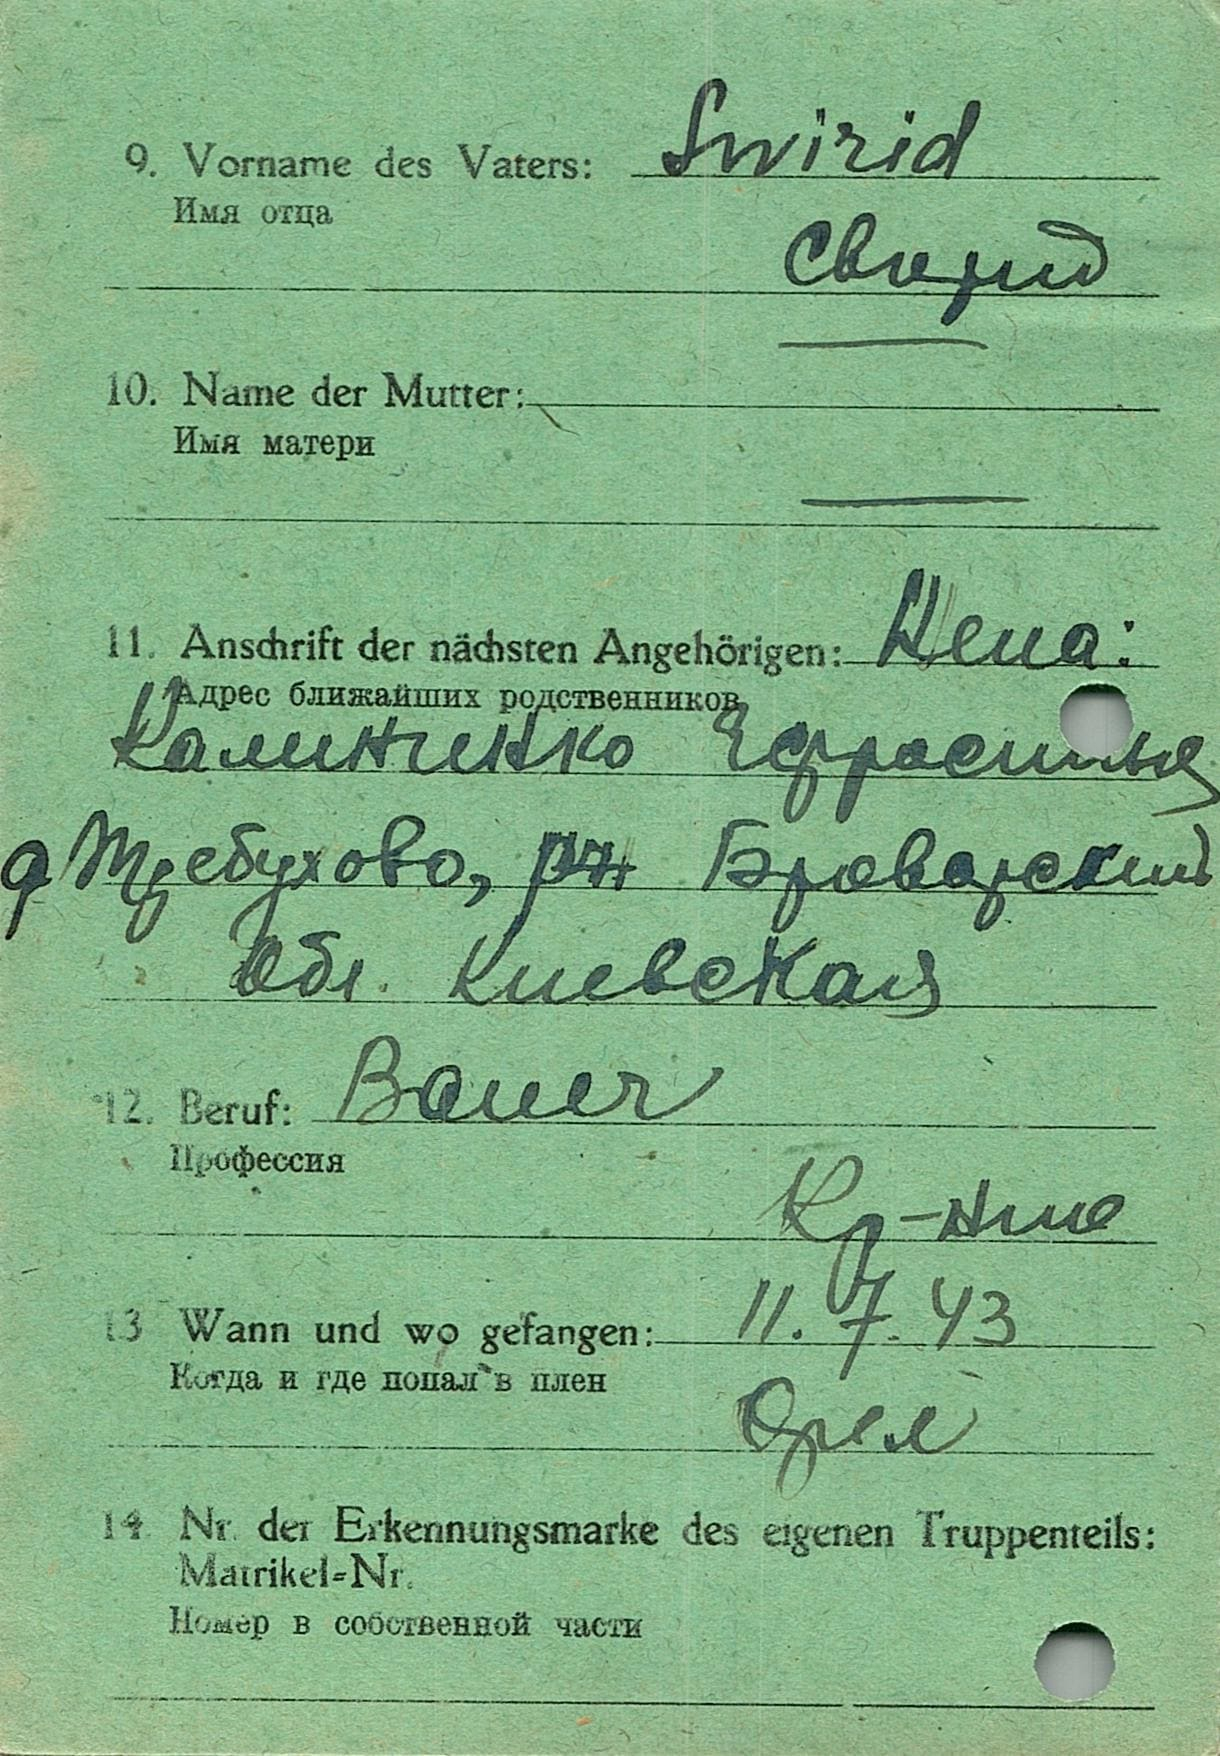 9. Vorname des Vaters: Swirid
Имя отца
Свирид
10. Name der Mutter:
Имя матери
11. Anschrift der nächsten Angehörigen: Жена:
Адрес ближайших родственников
Калиненко Ефросинья
д Требухово, рн Броварский
обл. Киевская
12. Beruf: Bauer
Профессия
Кр-нин
13 Wann und wo gefangen: 11. 7. 43
Когда и где попал в плен
Орел
14 Nr. der Erkennungsmarke des eigenen Truppenteils:
Matrikel-Nr.
Номер в собственной части